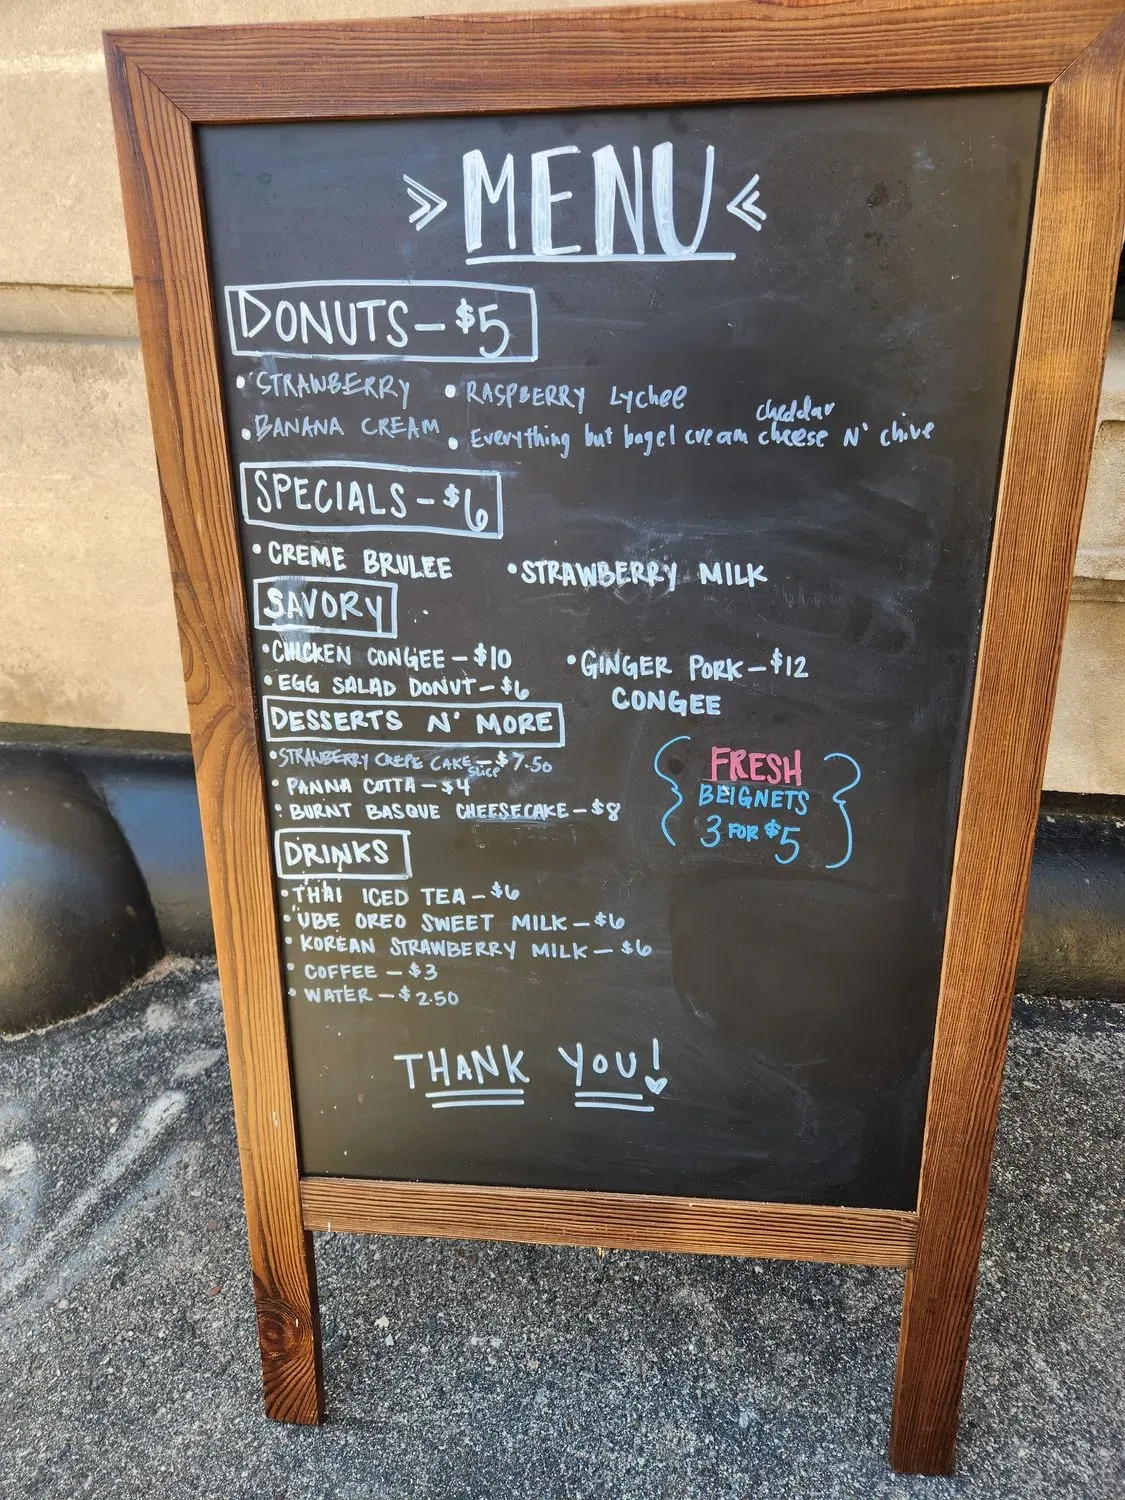 » MENU «
DONUTS - $5
• STRAWBERRY • RASPBERRY Lychee
• BANANA CREAM • Everything but bagel cream cheese N' chive
cheddar
SPECIALS - $6
• CREME BRULEE • STRAWBERRY MILK
SAVORY
• CHICKEN CONGEE - $10 • GINGER PORK - $12
CONGEE
• EGG SALAD DONUT - $6
DESSERTS N' MORE
• STRAWBERRY CREPE CAKE - $7.50
slice
• PANNA COTTA - $4
• BURNT BASQUE CHEESECAKE - $8
FRESH
BEIGNETS
3 FOR $5
DRINKS
• THAI ICED TEA - $6
• UBE OREO SWEET MILK - $6
• KOREAN STRAWBERRY MILK - $6
• COFFEE - $3
• WATER - $2.50
THANK YOU!